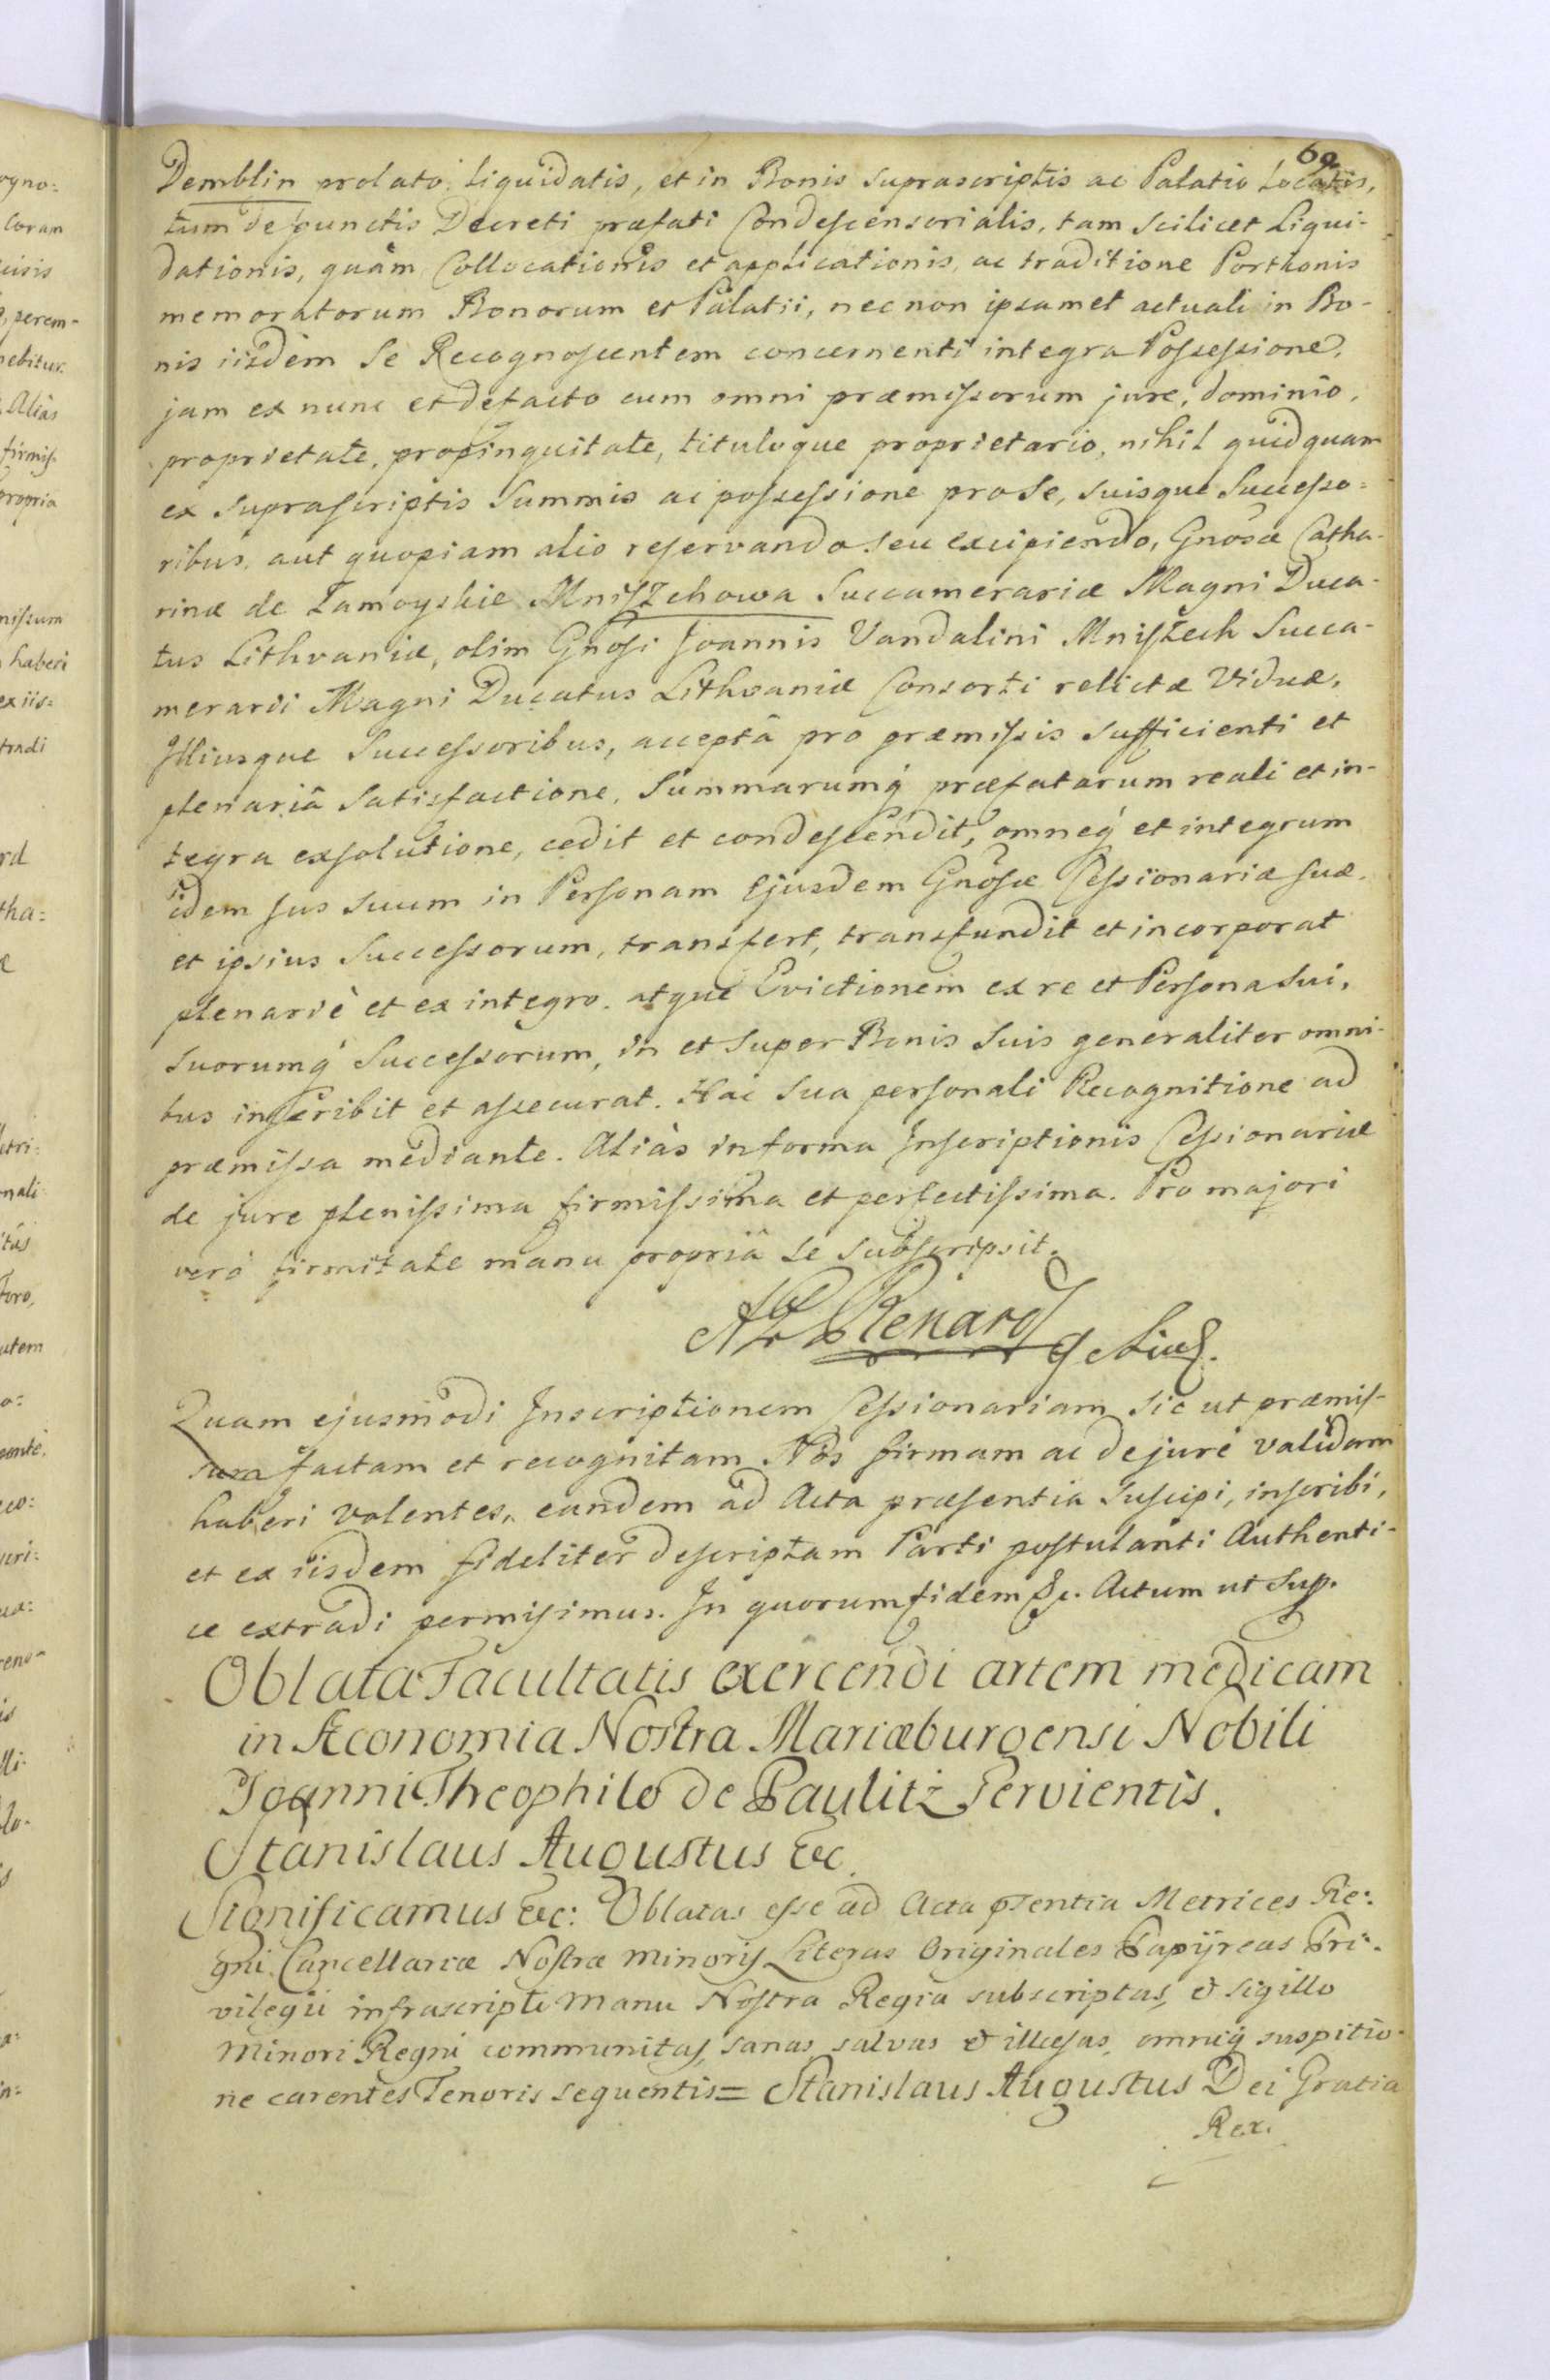 69
Demblin prolato liquidatis, et in Bonis suprascriptis ac Palatio Locatis,
tum de punctis Decreti præfati Condescensorialis, tam scilicet Liqui-
dationis, quàm Collocationis et applicationis, ac traditione Portionis
memoratorum Bonorum et Palatii, nec non ipsamet actuali in Bo-
nis iisdem Se Recognoscentem concernenti integra Possessione,
jam ex nunc et defacto cum omni præmissorum jure, dominio,
proprietate, propinquitate, tituloque proprietario, nihil quidquam
ex suprascriptis Summis ac possessione pro Se, suisque Successo=
ribus, aut quopiam alio reservando seu excipiendo, Gnosæ Catha-
rinæ de Zamoyskie Mniszchowa Succamerariæ Magni Duca-
tus Lithvaniæ, olim Gnosi Joannis Vandalini Mniszech Succa-
merarii Magni Ducatus Lithvaniæ Consorti relictæ Viduæ,
Illiusque Successoribus, acceptâ pro præmissis sufficienti et
plenariâ Satisfactione, Summarumq præfatarum reali et in-
tegra exsolutione, cedit et condescendit, omneq et integrum
idem jus suum in Personam Ejusdem Gnosæ Cessionariæ suæ.
et ipsius Successorum, transfert, transfundit et incorporat
plenariè et ex integro. atque Evictionem ex re et Persona sui,
suorumq Successorum, in et super Bonis suis generaliter omni-
bus inscribit et assecurat. Hac sua personali Recognitione ad
præmissa mediante. Aliàs in forma Inscriptionis Cessionariæ
de jure plenissima firmissima et perfectissima. Pro majori
verò firmitate manu propriâ se subscripsit.
Renard
Quam ejusmodi Inscriptionem Cessionariam sic ut præmis-
sum factam et recognitam Nos firmam ac de jure validam
haberi volentes, eandem ad Acta præsentia suscipi, inscribi,
et ex iisdem fideliter descriptam Parti postulanti Authenti-
ce extradi permisimus. In quorum fidem &c. Actum ut sup.
Oblata Facultatis exercendi artem medicam
in Æconomia Nostra Mariæburgensi Nobili
Joanni Theophilo de Paulitz Servientis.
Stanislaus Augustus &c.
Significamus &c: Oblatas esse ad Acta pſentia Metrices Re:
gni Cancellariæ Nostræ Minoris Literas Originales Papyreas Pri-
vilegii infrascripti Manu Nostra Regia subscriptas, & sigillo
Minori Regni communitas, sanas salvas & illæsas, omniq suspitio-
ne carentes Tenoris sequentis= Stanislaus Augustus Dei Gratia
Rex.